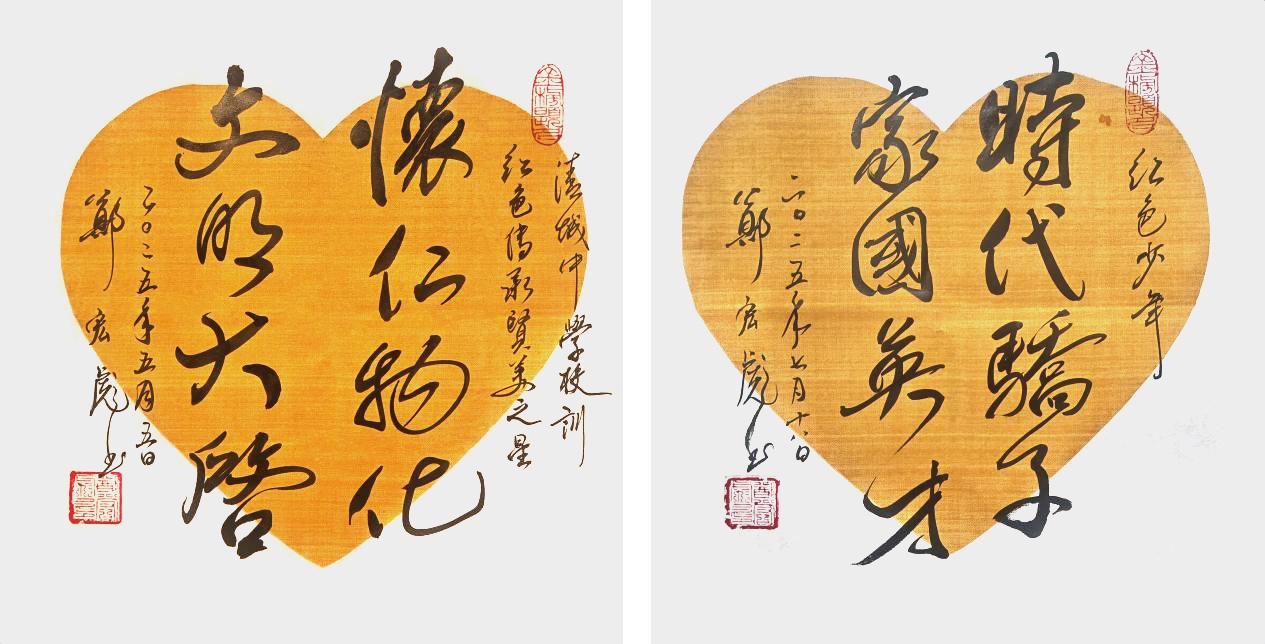 清城中學校訓
紅色傳承賢美之星
懷仁物化
文明大啓
二〇二五年五月五日
鄭宏彪书
紅色少年
時代驕子
家國英才
二〇二五年七月十八日
鄭宏彪书